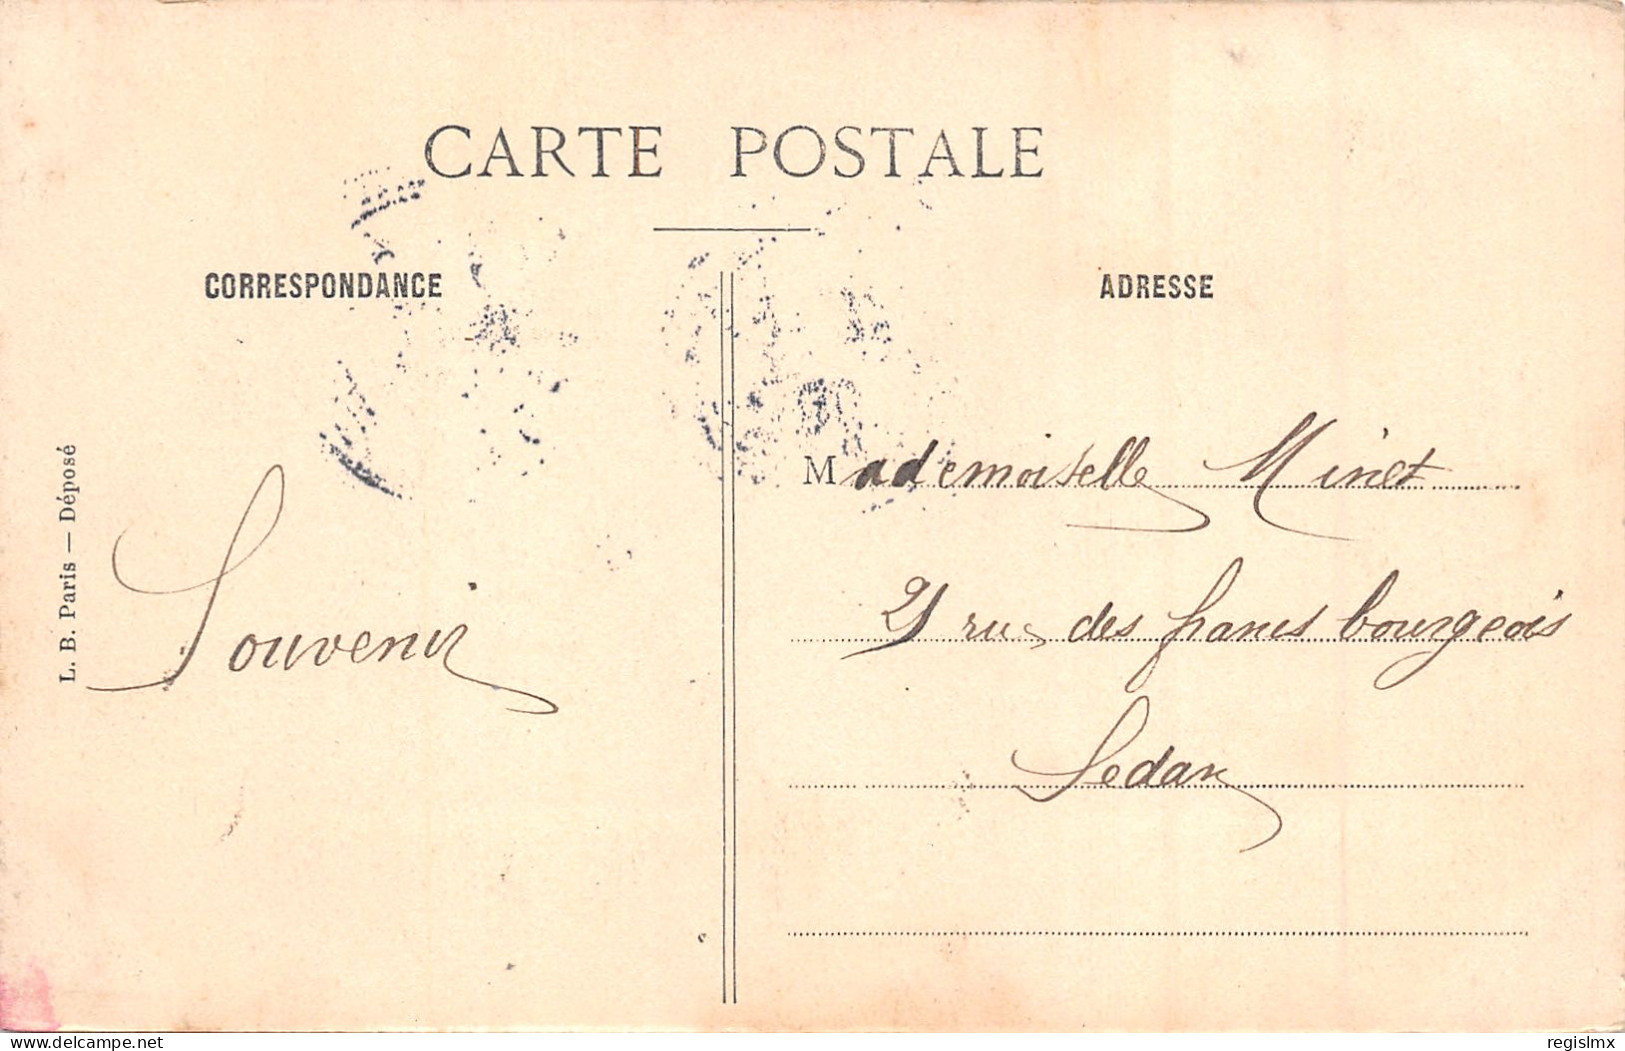 CARTE POSTALE
CORRESPONDANCE
ADRESSE
L. B. Paris — Déposé
Souvenir
Mademoiselle Minet
21 rue des francs bourgeois
Sedan
delcampe.net
regislmx